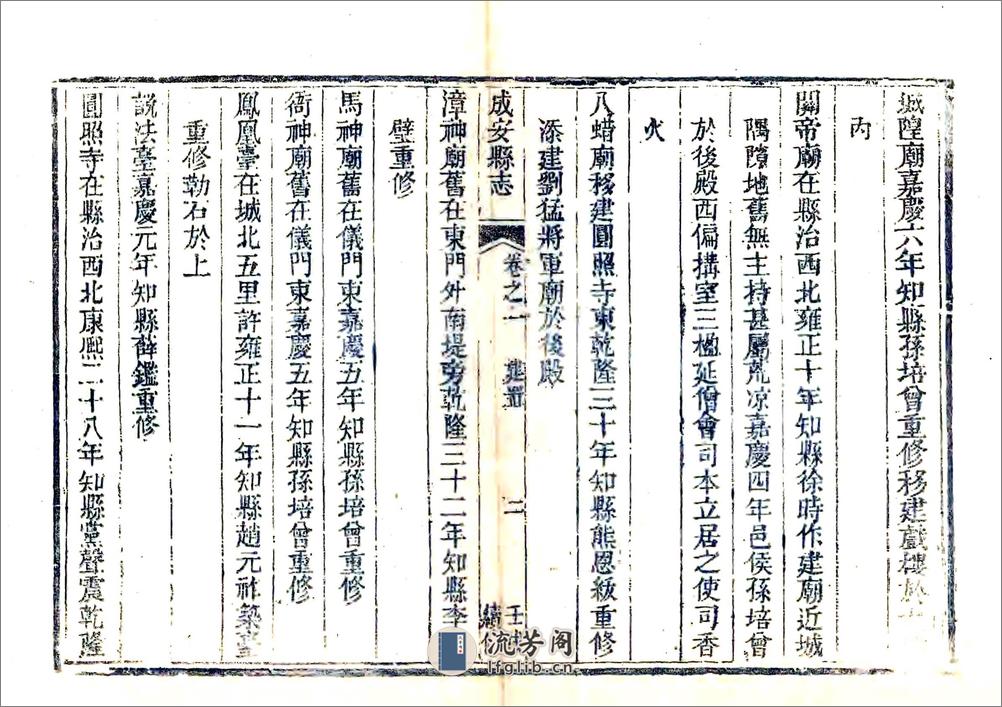 城隍廟嘉慶六年知縣孫培曾重修移建戲樓於
內
關帝廟在縣治西北雍正十年知縣徐時作建廟近城
隅隙地舊無主持甚屬荒凉嘉慶四年邑侯孫培曾
於後殿西偏搆室三楹延僧會司本立居之使司香
火
八蜡廟移建圓照寺東乾隆三十年知縣熊恩紱重修
添建劉猛將軍廟於後殿
成安縣志 卷之一 建置 二
漳神廟舊在東門外南堤旁乾隆三十二年知縣李
璧重修
馬神廟舊在儀門東嘉慶五年知縣孫培曾重修
衙神廟舊在儀門東嘉慶五年知縣孫培曾重修
鳳凰臺在城北五里許雍正十一年知縣趙元祚築臺
重修勒石於上
說法臺嘉慶元年知縣薛鑑重修
圓照寺在縣治西北康熙二十八年知縣黨聲震乾隆
流芳阁
lfglib.cn